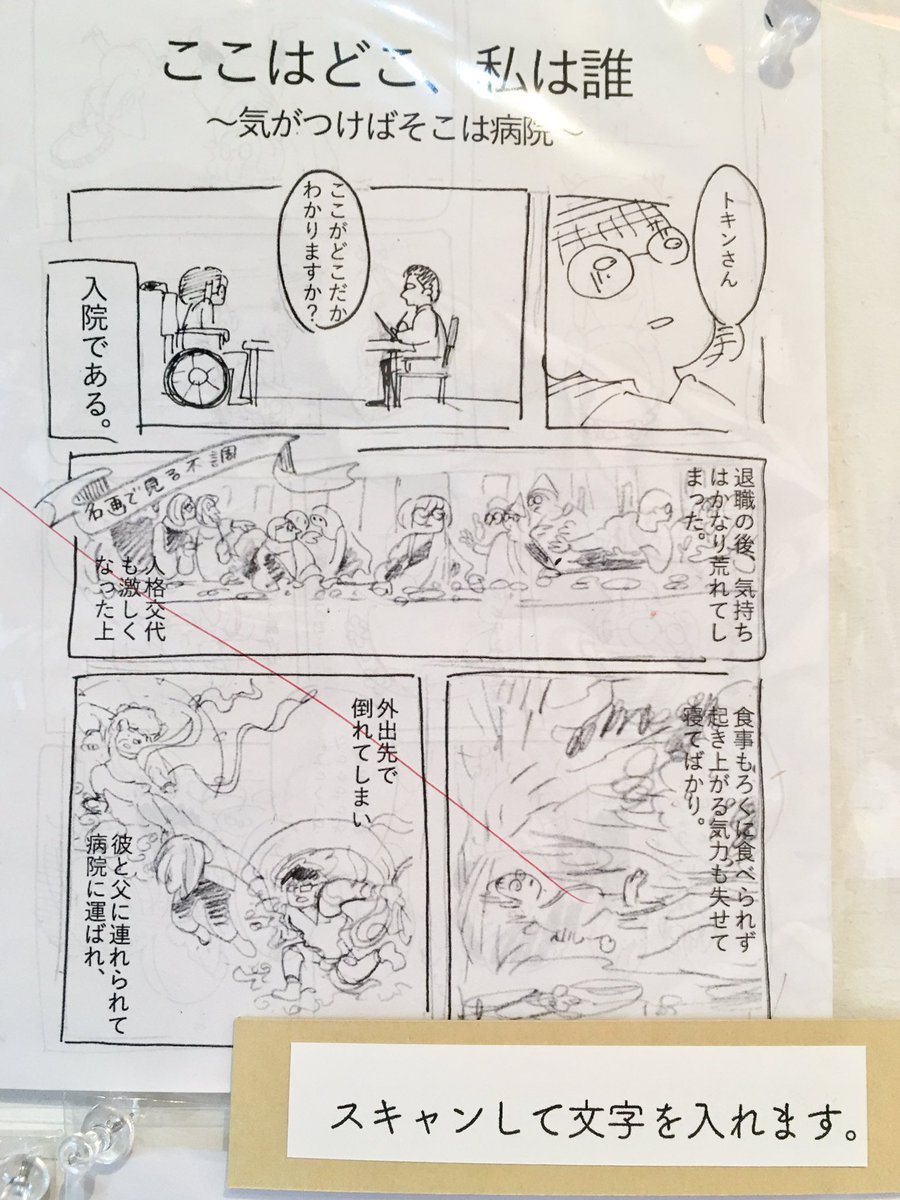 ここはどこ、私は誰
～気がつけばそこは病院～
トキンさん
ここがどこだか
わかりますか?
入院である。
退職の後、気持ち
はかなり荒れてし
まった。
名画で見る不調
人格交代
も激しく
なった上
食事もろくに食べられず
起き上がる気力も失せて
寝てばかり。
外出先で
倒れてしまい
彼と父に連れられて
病院に運ばれ、
スキャンして文字を入れます。